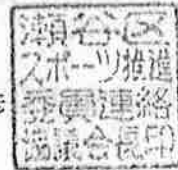 瀬谷区
スポーツ推進
委員連絡
協議会長印